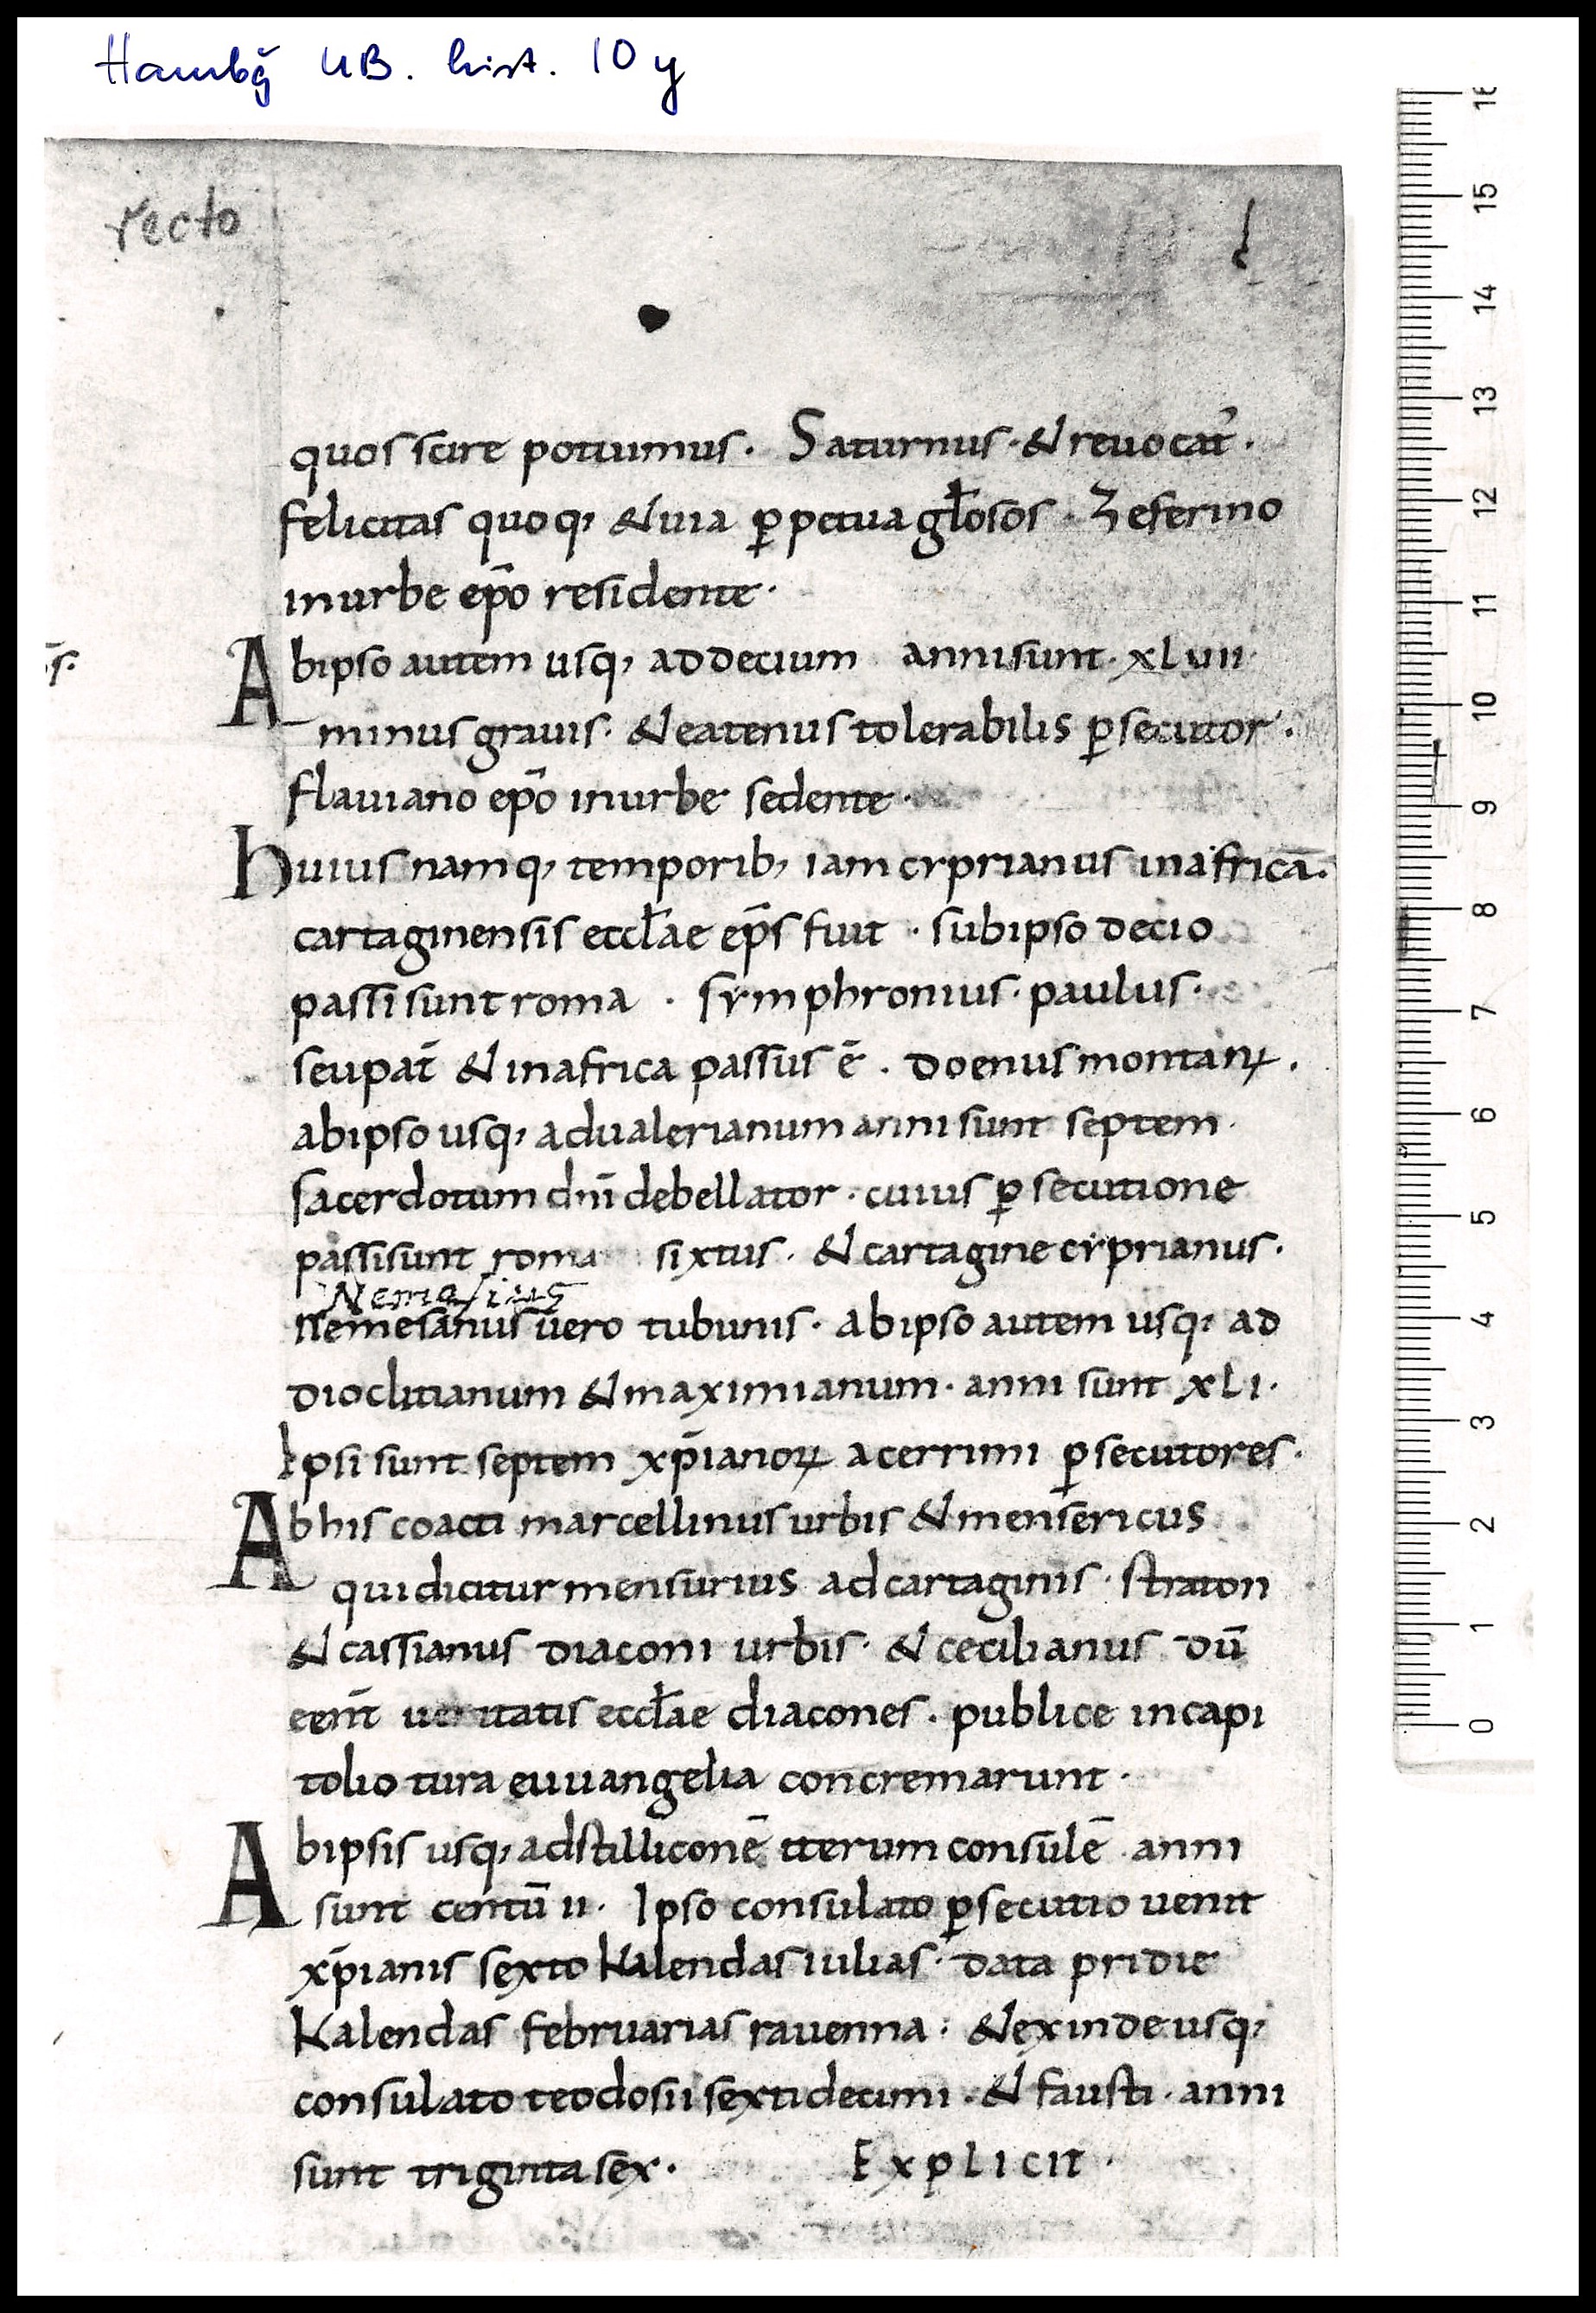 Hambg̃ UB. hist. 10 y
recto
quos scire potuimus. Saturnus · & reuocat̉ ·
felicitas quoq; & uia ꝑpetua gƚosos · Zeferino
in urbe ep̅o residente ·
Ab ipso autem usq; ad decium anni sunt · xlvii ·
minus grauis · & eatenus tolerabilis ꝑsecutor ·
flauiano ep̅o in urbe sedente ·
huius namq; temporib; iam cyprianus in africā ·
cartaginensis eccƚae ep̅s fuit · sub ipso decio
passi sunt roma · symphronius · paulus ·
seu pat̅ & in africa passus ē · doenus montanꝝ ·
ab ipso usq; ad ualerianum anni sunt septem ·
sacerdotum dn̅i debellator · cuius ꝑsecutione
passi sunt roma sixtus · & cartagine cyprianus ·
Nemesius
nemesanus uero tubunis · ab ipso autem usq; ad
dioclitianum & maximianum · anni sunt xli ·
Ipsi sunt septem xp̅ianoꝝ acerrimi ꝑsecutores ·
Ab his coacti marcellinus urbis & mensericus
qui dicitur mensurius ad cartaginis · straton
& cassianus diaconi urbis · & cecilianus dū
eent̅ ueritatis eccƚae diacones · publice in capi
tolio tura euuangelia concremarunt ·
Ab ipsis usq; ad stilliconē iterum consulē anni
sunt centū ii · Ipso consulato ꝑsecutio uenit
xp̅ianis sexto kalendas iulias · data pridie
kalendas februarias rauenna · & exinde usq;
consulato teodosii sexti decimi · & fausti · anni
sunt triginta sex · Explicit ·
0 1 2 3 4 5 6 7 8 9 10 11 12 13 14 15 16